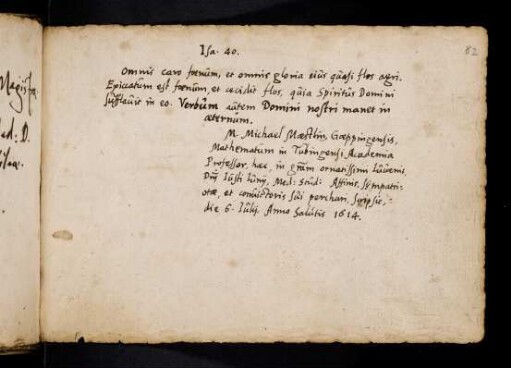 82
Isa. 40.
Omnis caro fœnum, et omnis gloria eius quasi flos agri.
Exiccatum est fœnum, et cecidit flos, quia Spiritus Domini
sufflavit in eo. Verbum autem Domini nostri manet in
æternum.
M. Michael Mæstlin, Gœppingensis,
Mathematum in Tubingensi Academia
Professor, hæc in grām ornatissimi Iuvenis
Dn̄j Iusti Iunij, Med: Stud: Affinis, Sympatri-
otæ, et convictoris sui perchari, scripsit,
die 6. Iulij. Anno Salutis 1614.
Magist
ed: D.